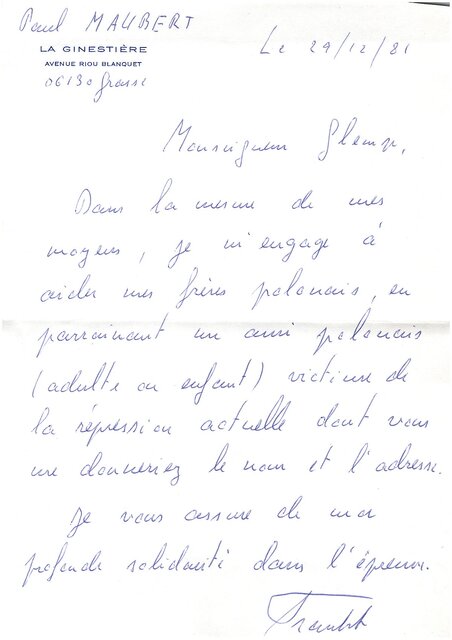 Paul MAUBERT
LA GINESTIÈRE
AVENUE RIOU BLANQUET
06130 Grasse
Le 29/12/81
Monseigneur Glemp,
Dans la mesure de mes
moyens, je m'engage à
aider mes frères polonais, en
parrainant un ami polonais
(adulte ou enfant) victime de
la répression actuelle dont vous
me donneriez le nom et l'adresse.
Je vous assure de ma
profonde solidarité dans l'épreuve.